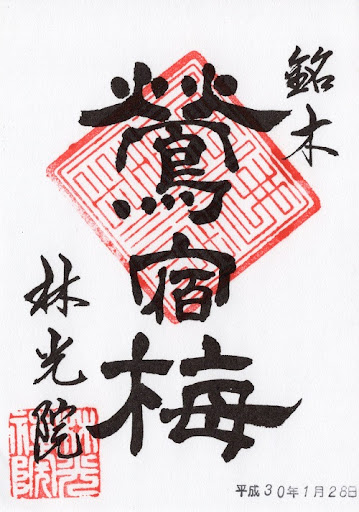 銘木
鶯宿梅
林光院
林光院
平成30年1月28日